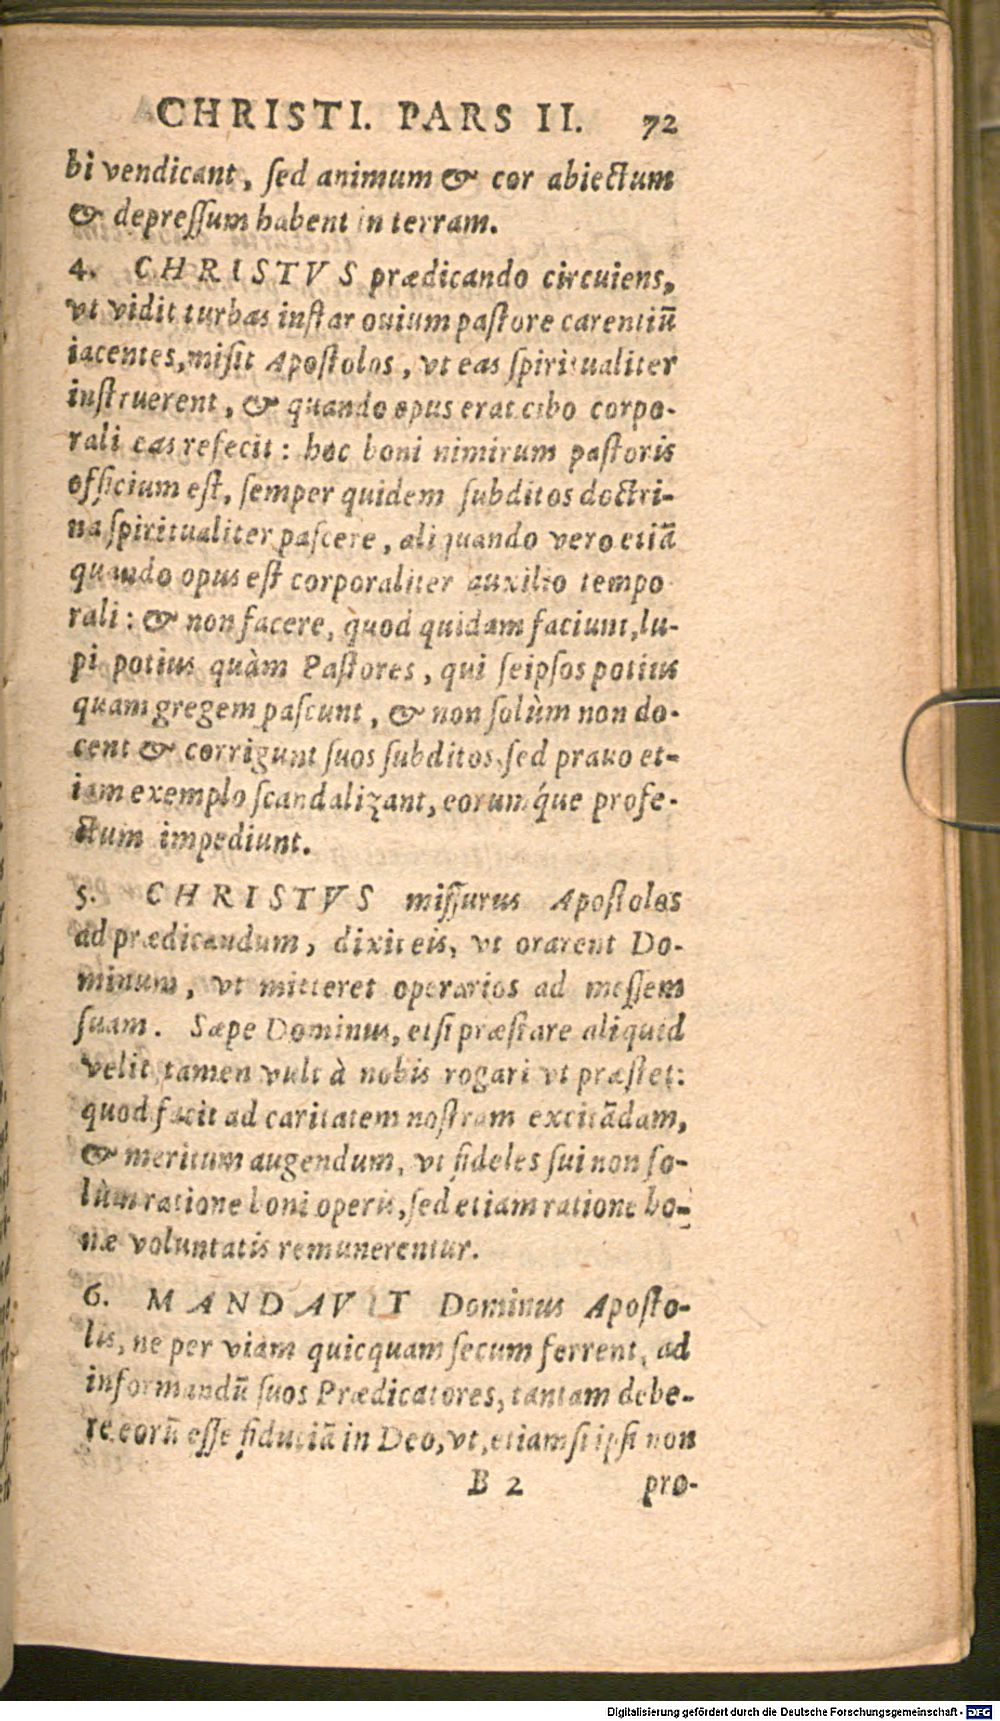 CHRISTI. PARS II. 72
bi vendicant, ſed animum & cor abiectum
& depreſſum habent in terram.
4. CHRISTVS prædicando circuiens,
vt vidit turbas inſtar ouium paſtore carentiū
iacentes, miſit Apoſtolos, vt eas ſpiritualiter
inſtruerent, & quando opus erat cibo corpo-
rali eas refecit: hoc boni nimirum paſtoris
officium eſt, ſemper quidem ſubditos doctri-
na ſpiritualiter paſcere, aliquando vero etiā
quando opus eſt corporaliter auxilio tempo
rali: & non facere, quod quidam faciunt, lu-
pi potius quàm Paſtores, qui ſeipſos potius
quam gregem paſcunt, & non ſolùm non do-
cent & corrigunt ſuos ſubditos, ſed prauo et-
iam exemplo ſcandalizant, eorumq́ue profe-
ctum impediunt.
5. CHRISTVS miſſurus Apoſtolos
ad prædicandum, dixit eis, vt orarent Do-
minum, vt mitteret operarios ad meſſem
ſuam. Sæpe Dominus, etſi præſtare aliquid
velit, tamen vult à nobis rogari vt præſtet:
quod facit ad caritatem noſtram excitādam,
& meritum augendum, vt fideles ſui non ſo-
lùm ratione boni operis, ſed etiam ratione bo-
næ voluntatis remunerentur.
6. MANDAVIT Dominus Apoſto-
lis, ne per viam quicquam ſecum ferrent, ad
informandū ſuos Prædicatores, tantam debe-
re eorū eſſe fiduciā in Deo, vt, etiamſi ipſi non
B 2 pro-
Digitalisierung gefördert durch die Deutsche Forschungsgemeinschaft - DFG